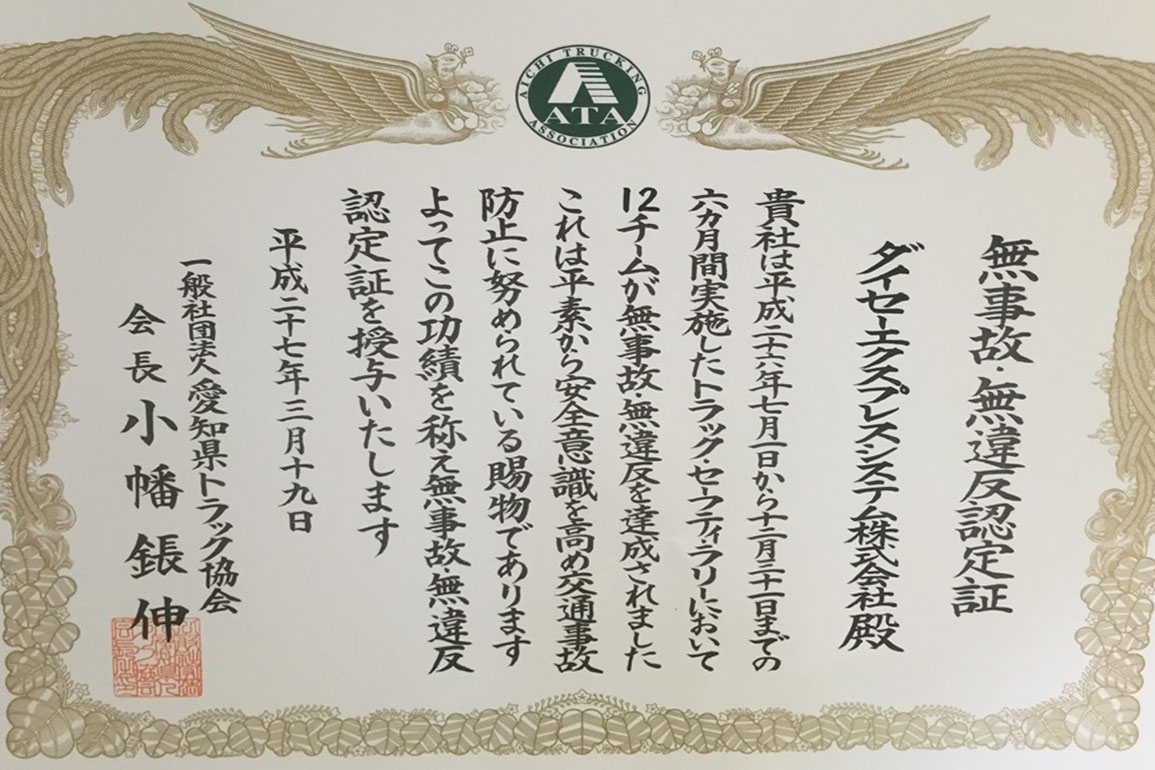 AICHI TRUCKING
ATA
ASSOCIATION
無事故・無違反認定証
ダイセーエクスプレスシステム株式会社殿
貴社は平成二十六年七月一日から十二月三十一日までの
六カ月間実施したトラックセーフティ・ラリーにおいて
12チームが無事故・無違反を達成されました
これは平素から安全意識を高め交通事故
防止に努められている賜物であります
よってこの功績を称え無事故・無違反
認定証を授与いたします
平成二十七年三月十九日
一般社団法人愛知県トラック協会
会長小幡鋹伸